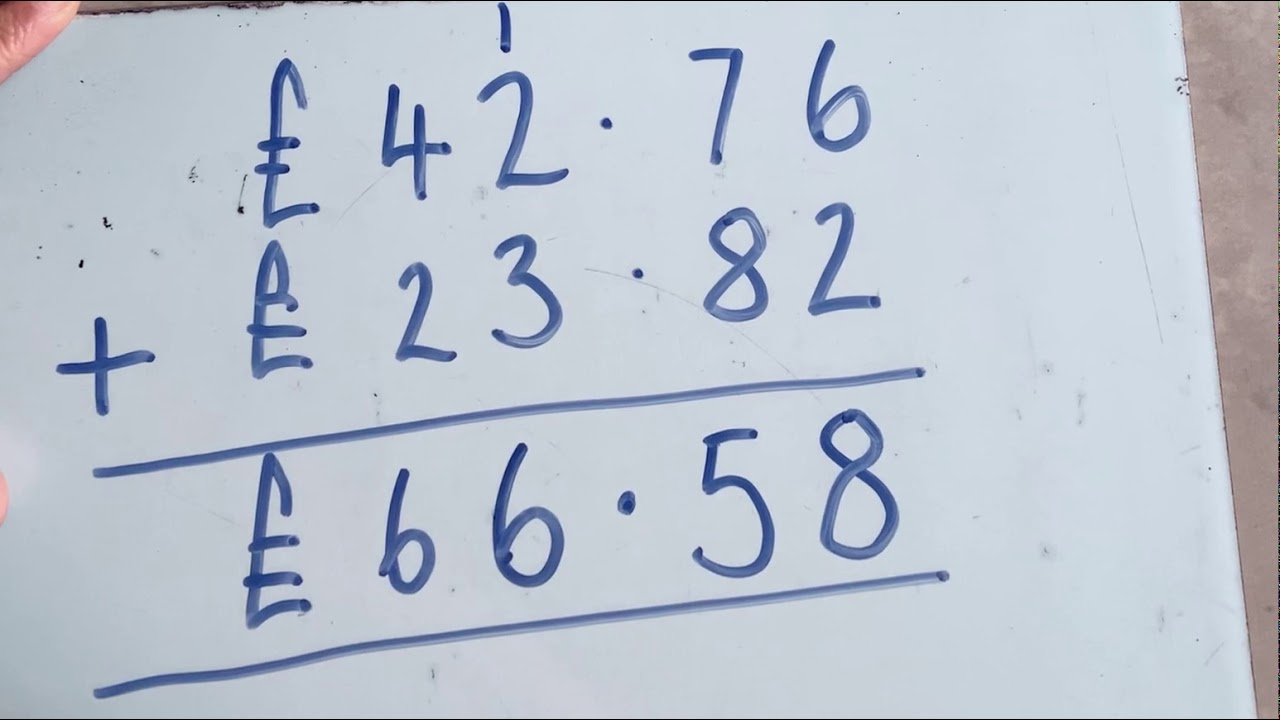 1
£42.76
+ £23.82
£66.58